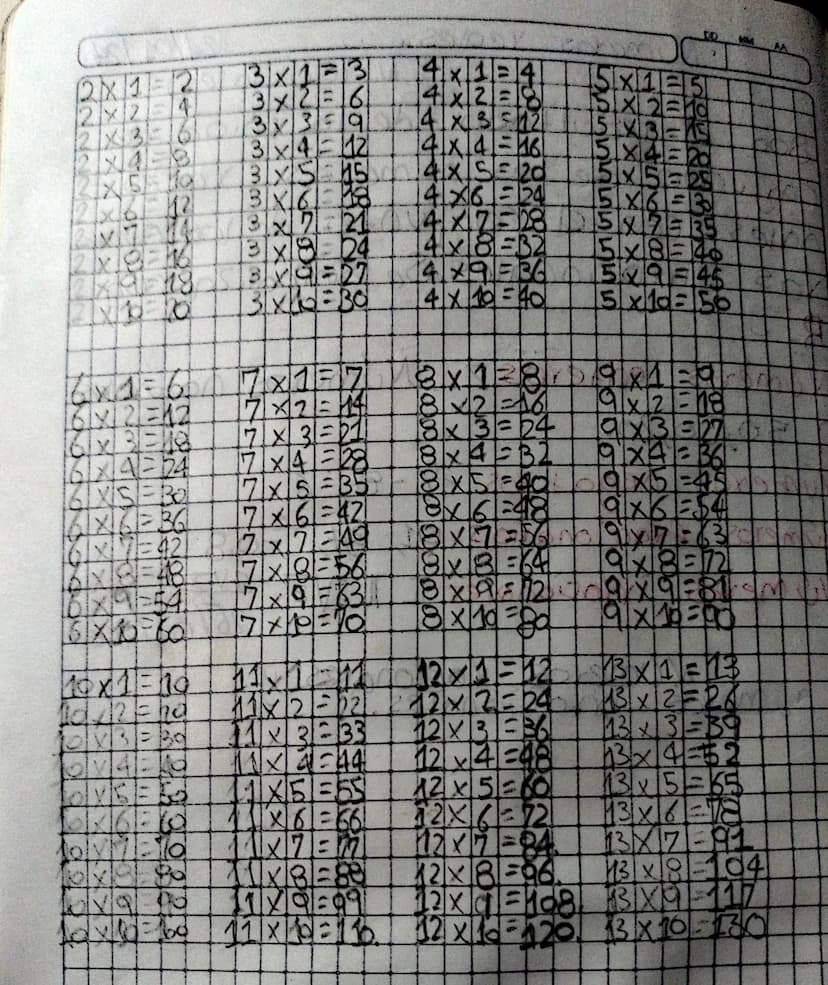 DD MM AA
2 x 1 = 2
2 x 2 = 4
2 x 3 = 6
2 x 4 = 8
2 x 5 = 10
2 x 6 = 12
2 x 7 = 14
2 x 8 = 16
2 x 9 = 18
2 x 10 = 20
3 x 1 = 3
3 x 2 = 6
3 x 3 = 9
3 x 4 = 12
3 x 5 = 15
3 x 6 = 18
3 x 7 = 21
3 x 8 = 24
3 x 9 = 27
3 x 10 = 30
4 x 1 = 4
4 x 2 = 8
4 x 3 = 12
4 x 4 = 16
4 x 5 = 20
4 x 6 = 24
4 x 7 = 28
4 x 8 = 32
4 x 9 = 36
4 x 10 = 40
5 x 1 = 5
5 x 2 = 10
5 x 3 = 15
5 x 4 = 20
5 x 5 = 25
5 x 6 = 30
5 x 7 = 35
5 x 8 = 40
5 x 9 = 45
5 x 10 = 50
6 x 1 = 6
6 x 2 = 12
6 x 3 = 18
6 x 4 = 24
6 x 5 = 30
6 x 6 = 36
6 x 7 = 42
6 x 8 = 48
6 x 9 = 54
6 x 10 = 60
7 x 1 = 7
7 x 2 = 14
7 x 3 = 21
7 x 4 = 28
7 x 5 = 35
7 x 6 = 42
7 x 7 = 49
7 x 8 = 56
7 x 9 = 63
7 x 10 = 70
8 x 1 = 8
8 x 2 = 16
8 x 3 = 24
8 x 4 = 32
8 x 5 = 40
8 x 6 = 48
8 x 7 = 56
8 x 8 = 64
8 x 9 = 72
8 x 10 = 80
9 x 1 = 9
9 x 2 = 18
9 x 3 = 27
9 x 4 = 36
9 x 5 = 45
9 x 6 = 54
9 x 7 = 63
9 x 8 = 72
9 x 9 = 81
9 x 10 = 90
10 x 1 = 10
10 x 2 = 20
10 x 3 = 30
10 x 4 = 40
10 x 5 = 50
10 x 6 = 60
10 x 7 = 70
10 x 8 = 80
10 x 9 = 90
10 x 10 = 100
11 x 1 = 11
11 x 2 = 22
11 x 3 = 33
11 x 4 = 44
11 x 5 = 55
11 x 6 = 66
11 x 7 = 77
11 x 8 = 88
11 x 9 = 99
11 x 10 = 110.
12 x 1 = 12
12 x 2 = 24
12 x 3 = 36
12 x 4 = 48
12 x 5 = 60
12 x 6 = 72
12 x 7 = 84.
12 x 8 = 96.
12 x 9 = 108.
12 x 10 = 120.
13 x 1 = 13
13 x 2 = 26
13 x 3 = 39
13 x 4 = 52
13 x 5 = 65
13 x 6 = 78
13 x 7 = 91
13 x 8 = 104
13 x 9 = 117
13 x 10 = 130